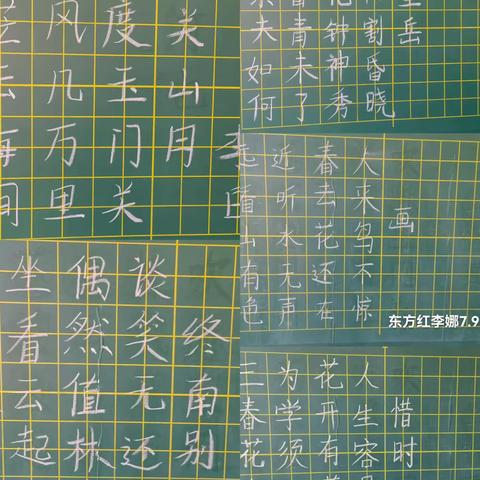 关山月
度玉门关
风几万里
岳
割昏晓
钟神秀
青未了
夫如何
画
人来鸟不惊
春去花还在
近听水无声
有色
东方红李娜7.9
终南别
谈笑无还
偶然值林
坐看云起
惜时
人生容
花开有
为学须
三春花